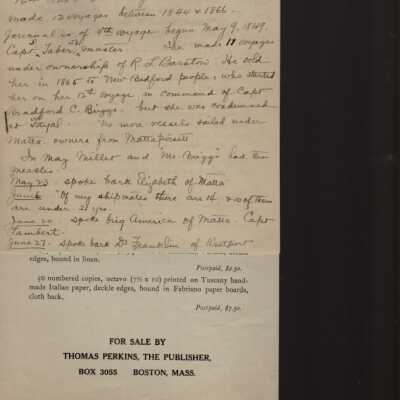 made 12 voyages between 1844 & 1866.
Journal is of 5th voyage begun May 9, 1849.
Capt Taber, master. She made 11 voyages
under ownership of R L Barstow. He sold
her in 1865 to New Bedford people, who started
her on her 12th voyage in command of Capt
Bradford C. Biggs. but she was condemned
at Fayal "No more vessels sailed under
Matta. owners from Mattapoisett
In May Millet and "Mr. Briggs" had the
measles.
May 23 spoke bark Elizabeth of Matta
June 6 "Of my shipmates there are 14 & of them
are under 21 yrs.
June 20 spoke brig America of Matta. Capt
Lambert.
June 27. spoke bark Dr Franklin of Westport
edges, bound in linen.
Postpaid, $2.50.
50 numbered copies, octavo (7½ x 10) printed on Tuscany hand-
made Italian paper, deckle edges, bound in Fabriano paper boards,
cloth back.
Postpaid, $7.50.
FOR SALE BY
THOMAS PERKINS, THE PUBLISHER,
BOX 3055 BOSTON, MASS.